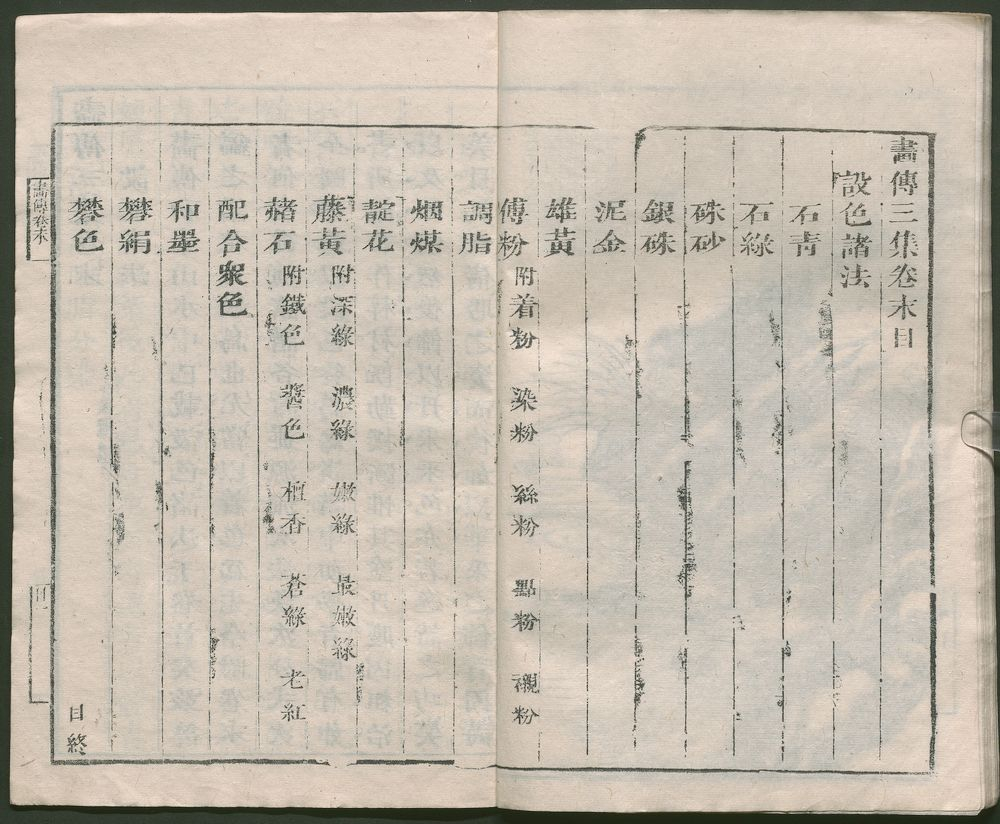 畫傳三集卷末目
設色諸法
石青
石綠
硃砂
銀硃
泥金
雄黃
傅粉 附着粉 染粉 絲粉 點粉 襯粉
調脂
烟煤
靛花
藤黃 附深綠 濃綠 嫩綠 最嫩綠
赭石 附鐵色 醬色 檀香 蒼綠 老紅
配合衆色
和墨
礬絹
礬色
目終
畫傳卷末
目一